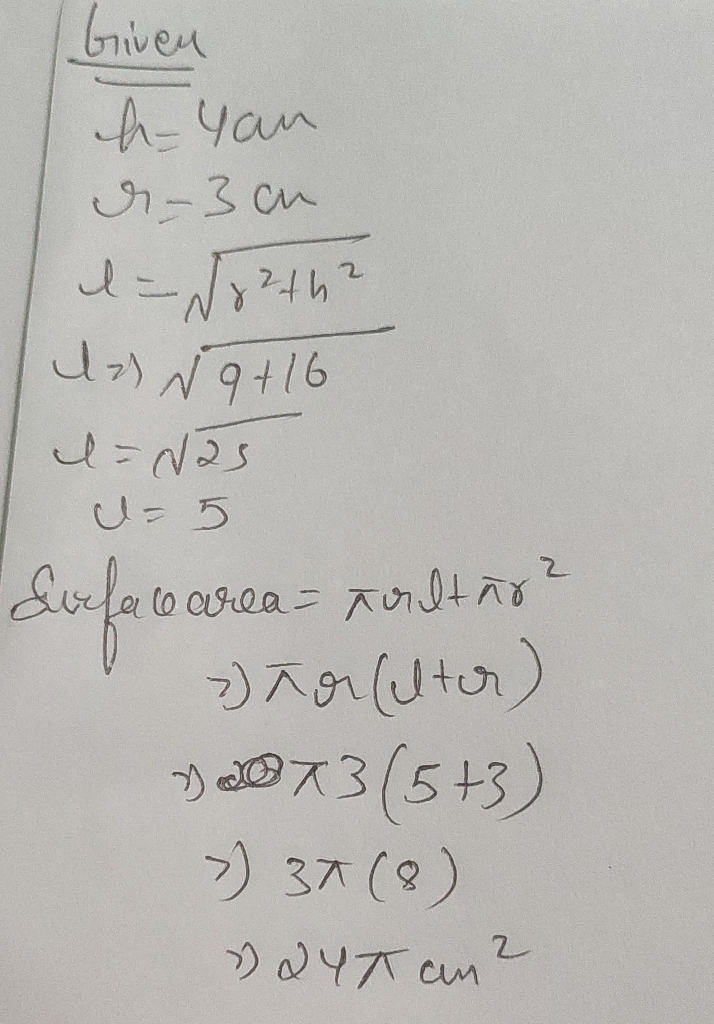 Given
h = 4cm
r = 3 cm
l = √r²+h²
l => √9+16
l = √25
l = 5
Surface area = πrl + πr²
=> πr(l+r)
=> π3(5+3)
=> 3π(8)
=> 24π cm²